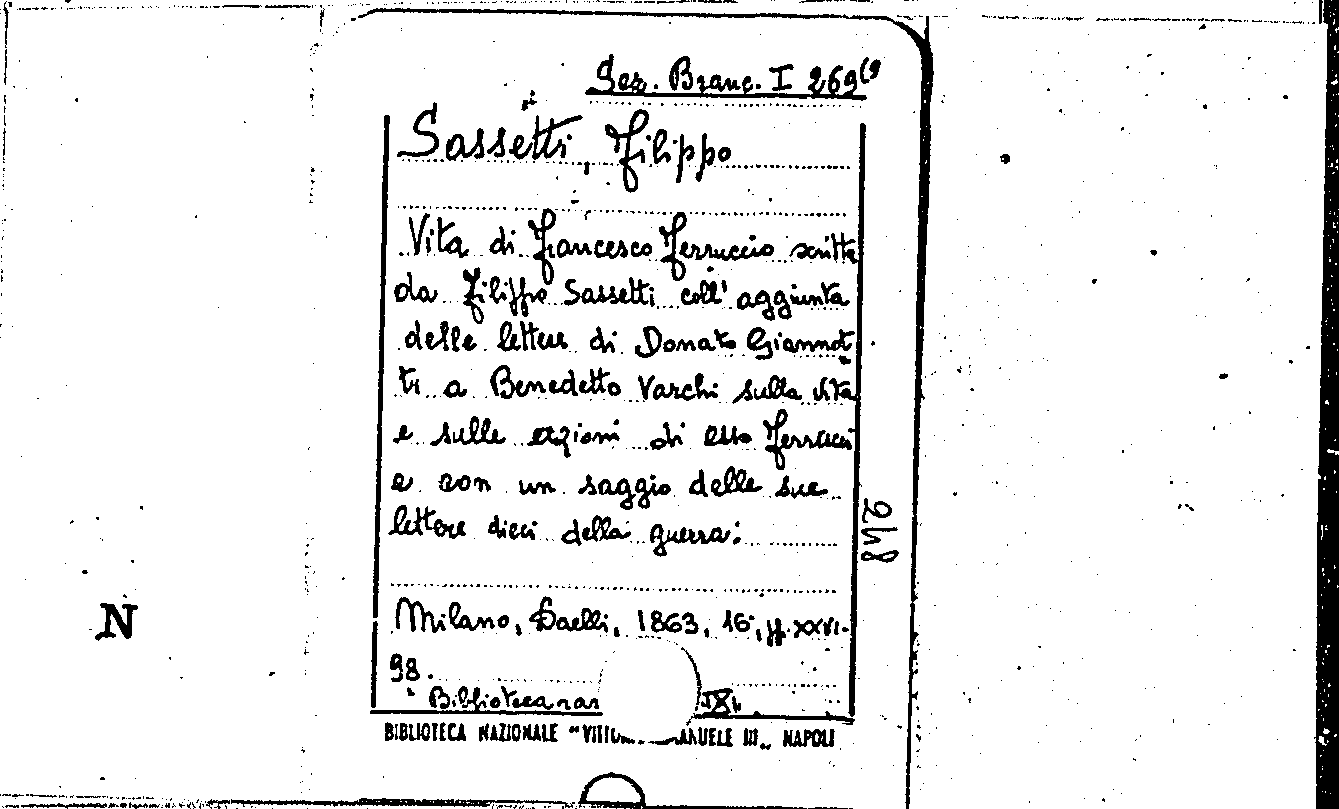 Sez. Branc. I 269(9
Sassetti, Filippo
Vita di Francesco Ferruccio scritta
da Filippo Sassetti coll' aggiunta
delle lettere di Donato Giannot
ti a Benedetto Varchi sulla vita
e sulle azioni di esso Ferrucci
e con un saggio delle sue
lettere dieci della guerra.
248
Milano, Daelli, 1863, 16°, pp. XXVI-
98.
Biblioteca rar IX).
BIBLIOTECA NAZIONALE "VITTO ANUELE III„ NAPOLI
N